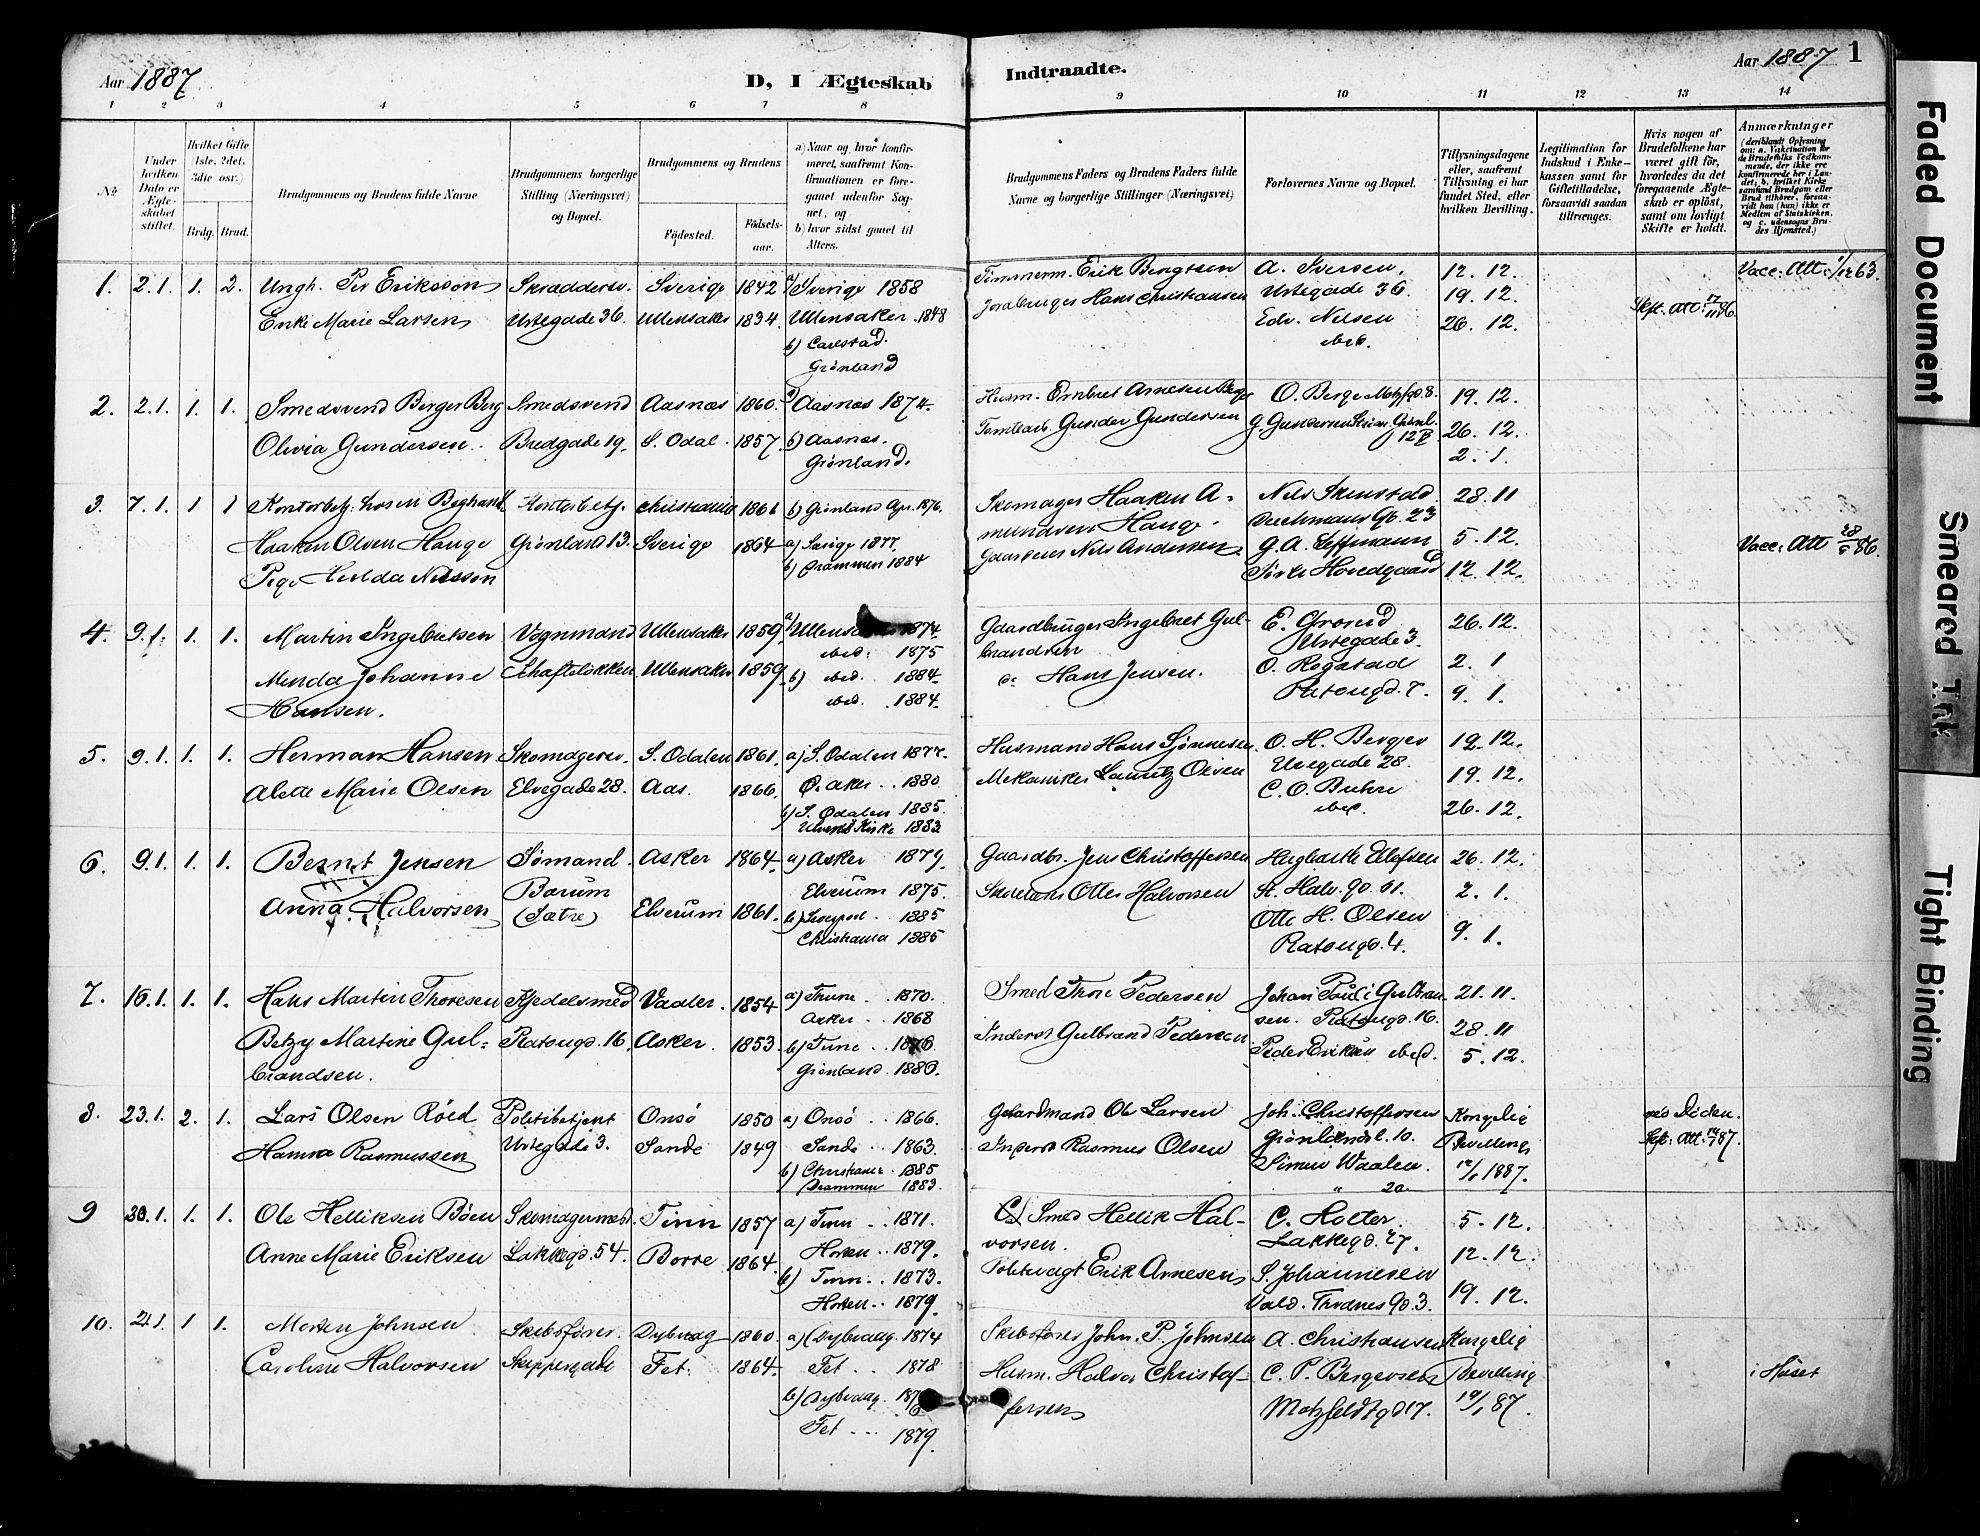 Aar 1887
D, I Ægteskab
Indtraadte.
Aar 1887 1
1 2 3 4 5 6 7 8 9 10 11 12 13 14
No
Under hvilken Dato er Ægteskabet stiftet.
Hvilket Gifte (1ste, 2det, 3die osv.)
Brdg. Brud.
Brudgommens og Brudens fulde Navne
Brudgommens borgerlige Stilling (Næringsvei) og Bopæl.
Brudgommens og Brudens
Födested.
Födselsaar.
a) Naar og hvor konfirmeret, saafremt Konfirmationen er foregaaet udenfor Sognet, og
b) hvor sidst gaaet til Alters.
Brudgommens Faders og Brudens Faders fulde Navne og borgerlige Stillinger (Næringsvei)
Forlovernes Navne og Bopæl.
Tillysningsdagene eller, saafremt Tillysning ei har fundet Sted, efter hvilken Bevilling.
Legitimation for Indskud i Enkekassen samt for Giftetilladelse, forsaavidt saadan tiltrænges.
Hvis nogen af Brudefolkene har været gift för, hvorledes da det foregaaende Ægteskab er oplöst, samt om lovligt Skifte er holdt.
Anmærkninger
1. 2.1. 1. 2. Ungk. Per Eriksson Skrædderso. Sverige 1842 a) Sverige 1858
Enke Marie Larsen Urtegade 36. Ullensaker 1834. Ullensaker. 1848
b) Carlstad.
Grönland
Timmerm. Erik Bengtsen A. Iversen, 12. 12. Vacc. Att. 1/12 63.
Jordbruger Hans Christiansen Urtegade 36. 19. 12. Skft. Att. 17/11 86.
Edv. Nilsen 26. 12.
ibid.
2. 2.1. 1. 1. Smedsvend Berger Berg Smedsvend Aasnæs 1860. a) Aasnæs 1874.
Olivia Gundersen. Bredgade 19. S. Odal. 1857. b) Aasnæs.
Grönland.
Husm. Embret Arnesen Berge O. Berge Motzfgd. 8. 19. 12.
Gunder Gundersen G. Gundersen Grönl. 12 26. 12.
2. 1.
3. 7.1. 1 1 Kontorbetj. Kontorbetj. Christiania 1861 b) Grönland Apr. 1876.
Haaken Olsen Hauge Grönland 13. Sverige 1864 a) Sverige 1877.
Pige Hulda Nilsson b) Drammen 1884
Skomager Haaken A- Nils 28. 11
mundsen Hauge. Deichmans Gd. 23
Nils Andersen. G. A. Hoffmann 5. 12. Vacc. Att 28/5 86.
Hovedgaard 12. 12.
4. 9.1. 1. 1. Martin Ingebretsen Vognmand Ullensaker 1859 a) Ullensaker 1874.
ibid. 1875
Menda Johanne Schaftelökken Ullensaker 1859. b) ibid. 1884.
Hansen. ibid. 1884.
Gaardbruger Ingebret Gul- E. Grorud 26. 12.
brandsen Urtegade 3.
do Hans Jensen. O. Rogstad 2. 1
Platougd. 7. 9. 1.
5. 9.1. 1. 1. Herman Hansen Skomagersv. S. Odalen 1861. a) S. Odalen 1877.
Alette Marie Olsen Elvegade 28. Aas. 1866. Ö. Aker .. 1880
b) S. Odalen 1885.
Kirke 1883
Husmand Hans O. H. Berger 12. 12.
Mekaniker Lauritz Olsen Elvegade 28. 19. 12.
C. O. Buhre
ibid. 26. 12.
6. 9.1. 1. 1. Bernt Jensen Sömand. Asker 1864. a) Asker 1879.
Bærum Elverum 1875.
Anna Halvorsen (Sætre) Elverum 1861. b) Liverpool .. 1885
Christiania 1885
Gaardbr. Jens Christoffersen Ellefsen 26. 12.
Otter Halvorsen St. Halv. gd. 61. 2. 1.
Otto H. Olsen
Platougd. 4. 9. 1.
7. 16.1. 1. 1. Hans Martin Thoresen Kjedelsmed Vaaler. 1854 a) Thune .. 1870.
Asker .. 1868
Betzy Martine Gul- Platougd. 16. Asker. 1853. b) Tune .. 1870
brandsen. Grönland. 1886.
Smed Thore Pedersen Johan Pauli Gulbran- 21. 11.
sen. Platougd. 16.
Inderst Gulbrand Pedersen 28. 11
Peder Eriksen ibid. 5. 12.
8. 23.1. 2. 1. Lars Olsen Röed Politibetjent Onsö 1850 a) Onsö .. 1866.
Hanna Rasmussen Urtegade 3. Sande 1849 Sande .. 1863.
b) Christiania .. 1885
Drammen 1883.
Gaardmand Ole Larsen Joh. Christoffersen Kongelig ved Döden.
Inderst Rasmus Olsen Grönlandsl. 10. Bevilling Skft. Att. 14/1 87.
Simen Waaler. 12/1 1887.
" 20
9 30.1. 1. 1. Ole Helliksen Böen Skomagermest. Tinn 1857 a) Tinn .. 1871.
Anne Marie Eriksen Lakkegd. 54. Borre 1864. Horten .. 1879.
b) Tinn .. 1873.
Horten .. 1879.
Smed Hellik Hal- C. Holter. 5. 12.
vorsen. Lakkegd. 27.
Politivagt Erik Arnesen S. Johannesen 12. 12.
Vald. Thranes Gd. 3. 19. 12.
10. 21.1 1 1. Morten Johnsen Skibsförer. Dybvaag 1860. a) Dybvaag. 1874
Caroline Halvorsen Skippergade Fet. 1864. Fet .. 1878
b) Dybvaag.
Fet ... 1879.
Skibsförer John. P. Johnsen A. Christiansen Kongelig
Husm. Halvor Christof- C. P. Bergersen Bevilling i Huset
fersen Motzfeldtgd 17. 19/1 87.
Faded Document
Smeared Ink
Tight Binding